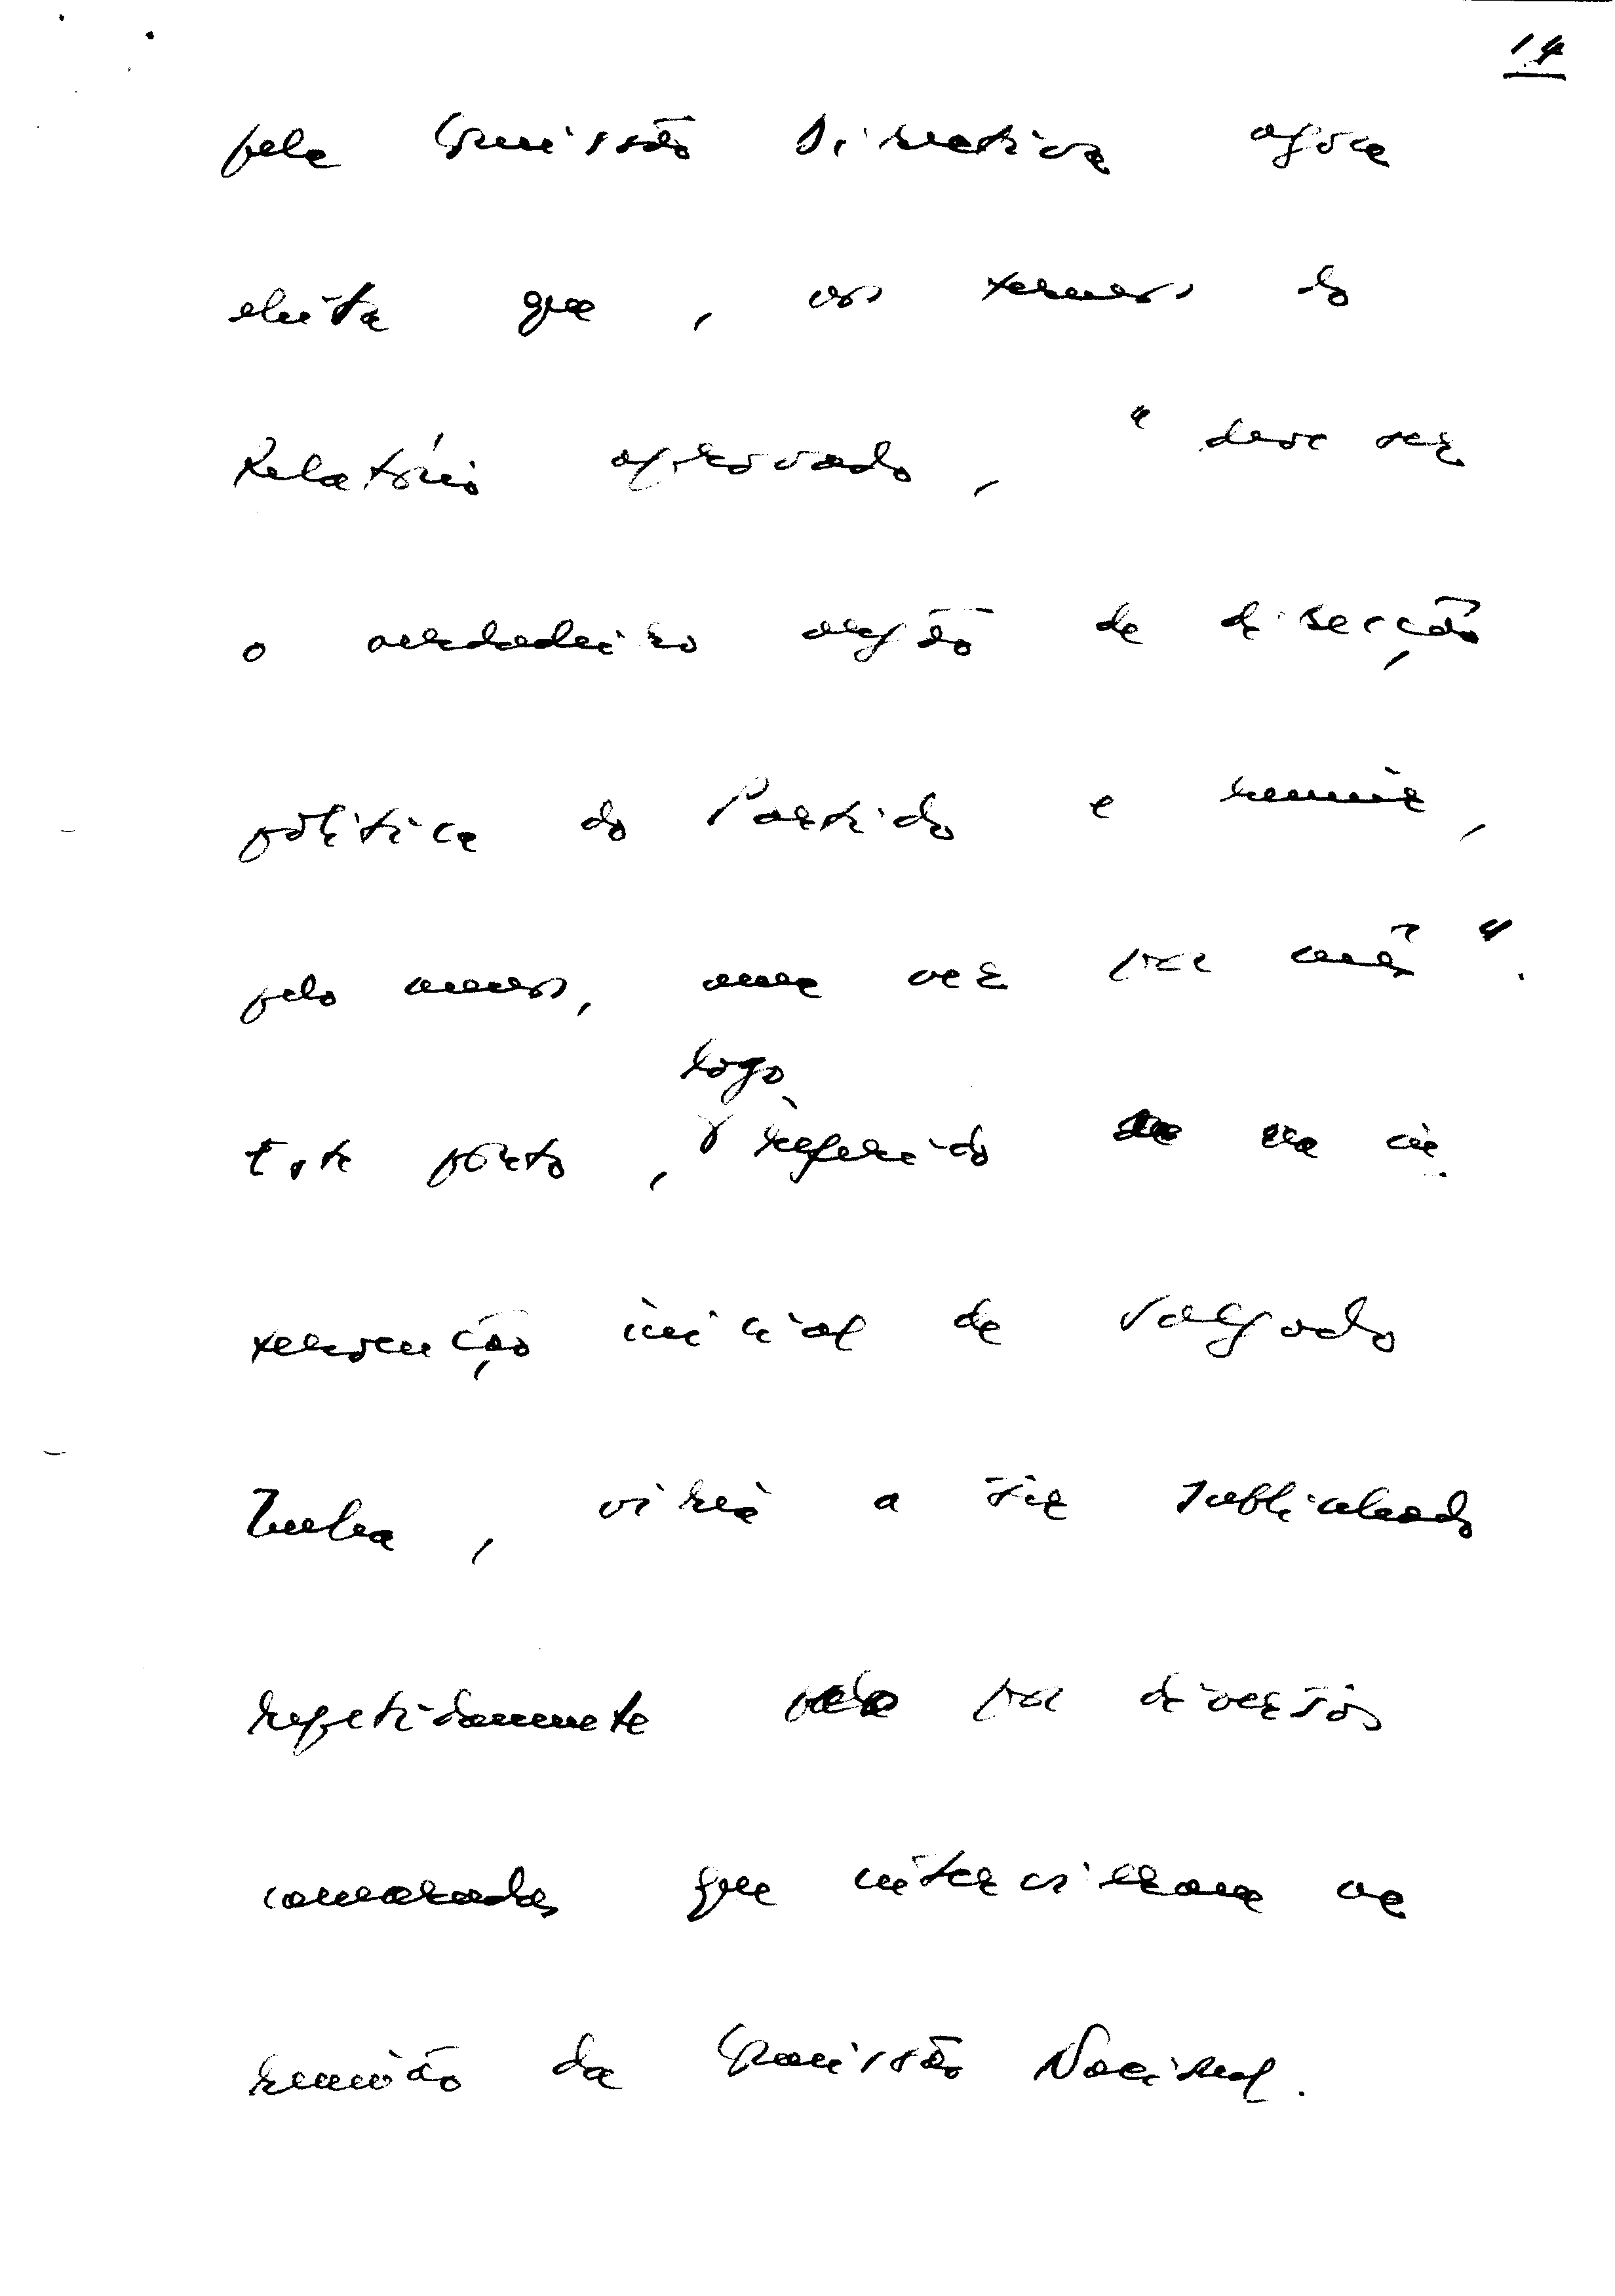 14
pela Comissão Directiva agora
eleita que, nos termos do
Relatório aprovado, "deve ser
o verdadeiro orgão de direcção
política do Partido e reunir,
pelo menos, uma vez por mês".
logo
Este ponto, referido na in
tervenção inicial de Salgado
Zenha, viria a ser sublinhado
repetidamente por diversos
camaradas que intervieram na
reunião da Comissão Nacional.